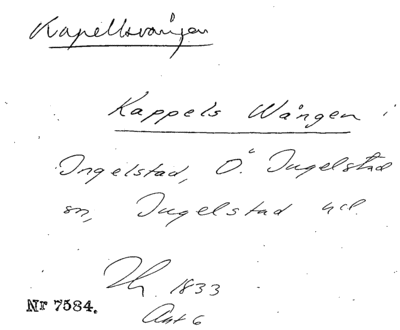 Kapellsvången
Kappels Wången i
Ingelstad, Ö. Ingelstad
sn, Ingelstad hd.
1833
Akt 6
Nr 7584.